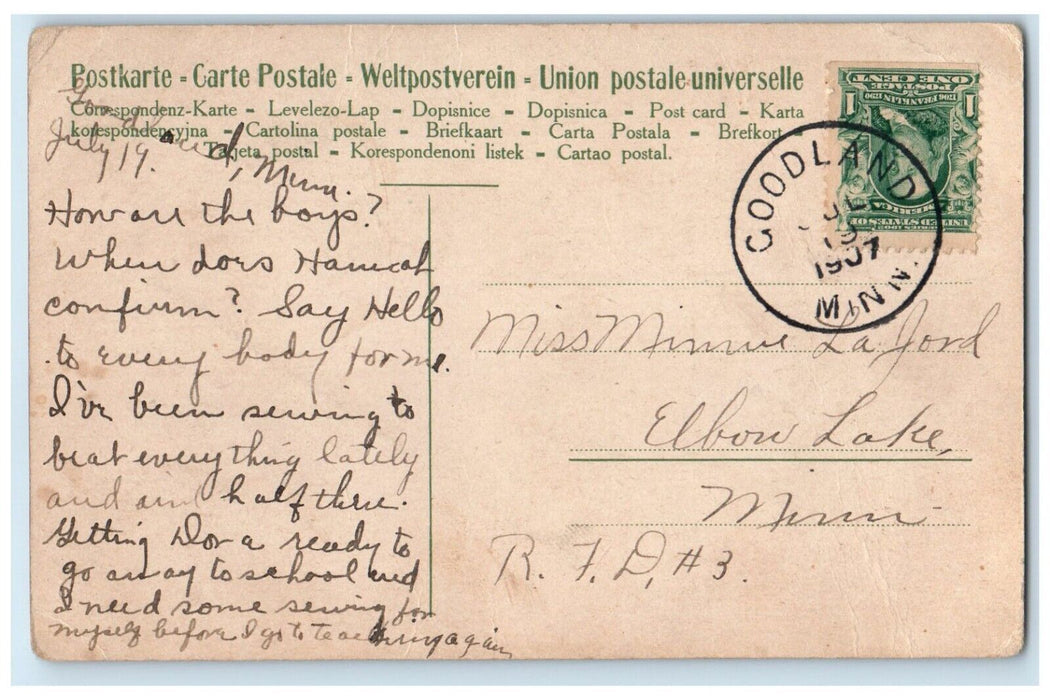 Postkarte - Carte Postale - Weltpostverein - Union postale universelle
Correspondenz-Karte - Levelezo-Lap - Dopisnice - Dopisnica - Post card - Karta
korespondencyjna - Cartolina postale - Briefkaart - Carta Postala - Brefkort
Tarjeta postal - Korespondenoni listek - Cartao postal.
Goodland, Minn.
July 19.
How are the boys?
When does Hannah
confirm? Say Hello
to every body for me.
I've been sewing to
beat everything lately
and am half there.
Getting Dora ready to
go away to school and
I need some sewing for
myself before I go to teaching again
POSTAGE
ONE CENT
1 1
FRANKLIN
SERIES 1902
UNITED STATES OF
AMERICA
GOODLAND
JUL
19
1907
MINN.
Miss Minnie La Jord
Elbow Lake,
Minn.
R. F. D, #3.